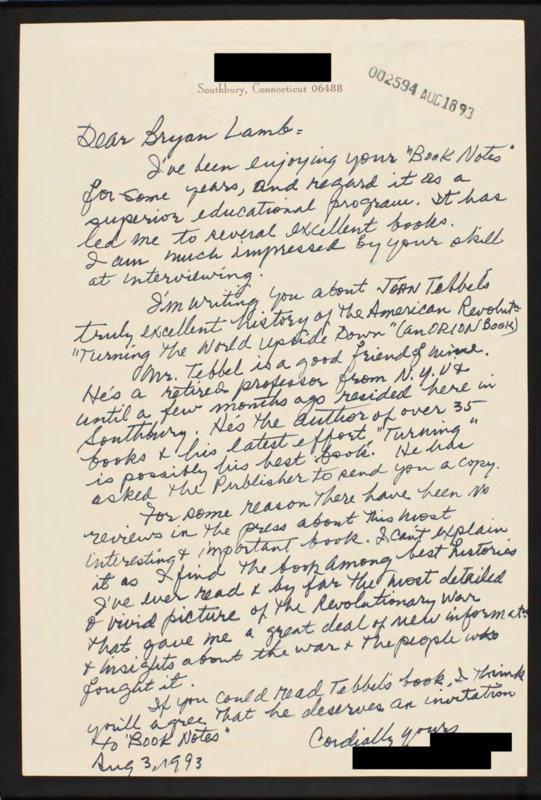 Southbury, Connecticut 06488
002594 AUG 18 93
Dear Bryan Lamb=
I've been enjoying your "Book Notes"
for some years, and regard it as a
superior educational program. It has
led me to several excellent books.
I am much impressed by your skill
at interviewing.
I'm writing you about JOHN Tebbel's
truly excellent history of the American Revolut-
"Turning The World Upside Down" (an ORION BOOK)
Mr. Tebbel is a good friend of mine.
He's a retired professor from N.Y.U &
until a few months ago resided here in
Southbury. He's the author of over 35
books & his latest effort, "Turning"
is possibly his best book. He has
asked the Publisher to send you a copy.
For some reason there have been no
reviews in the press about this most
interesting & important book. I can't explain
it as I find the book among best histories
I've ever read & by far the most detailed
& vivid picture of the Revolutionary War
that gave me a great deal of new informat-
& insights about the war & the people who
fought it.
If you could read Tebbel's book, I think
you'll agree that he deserves an invitation
to "Book Notes"
Cordially yours
Aug 3, 1993